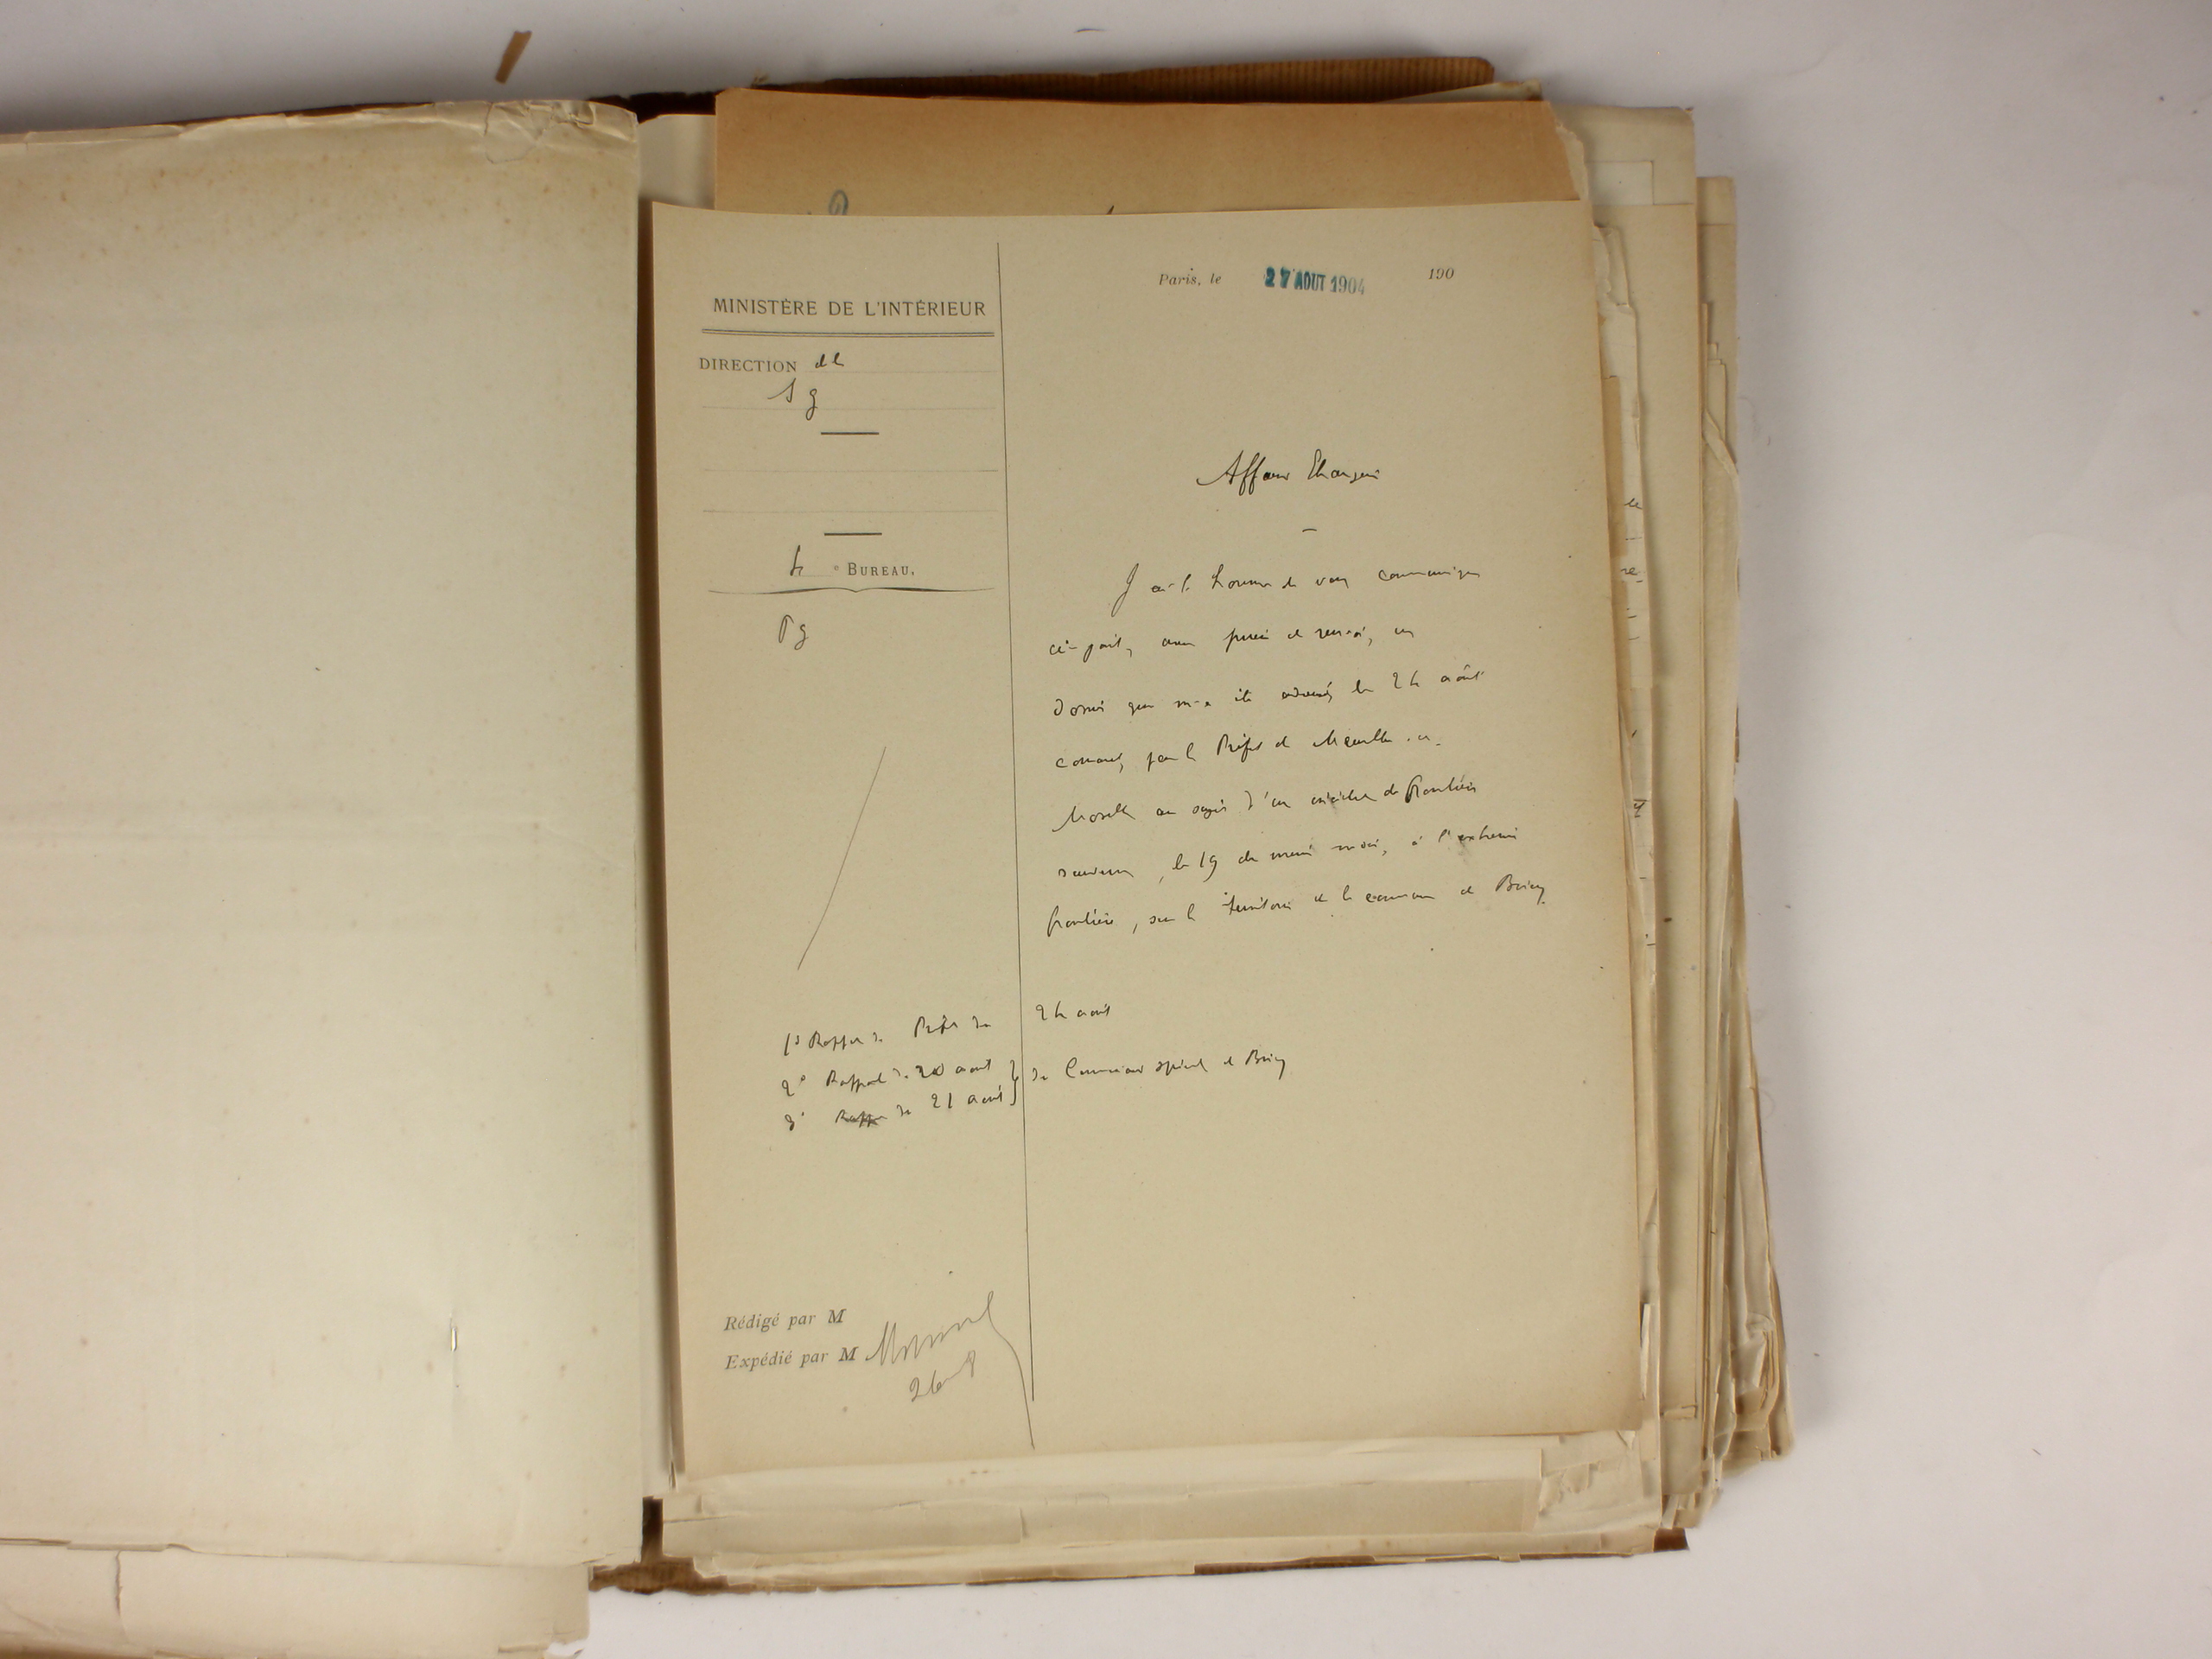 Paris, le 27 AOUT 1904 190
MINISTÈRE DE L'INTÉRIEUR
DIRECTION de la
S g
4 e BUREAU.
Affaires Etrangères
J'ai l'honneur de vous communiquer
ci-joint, avec prière de renvoi, un
dossier qui m'a été adressé, le 24 août
courant, par le Préfet de Meurthe-et-
Moselle au sujet d'un incident de frontière
survenu, le 19 du même mois, à l'extrême
frontière, sur le territoire de la commune de Briey.
1° Rapport du Préfet du 24 août
2° Rapport du 20 août
3° Rapp du 21 août } du Commissaire spécial de Briey
Rédigé par M
Expédié par M
26 8